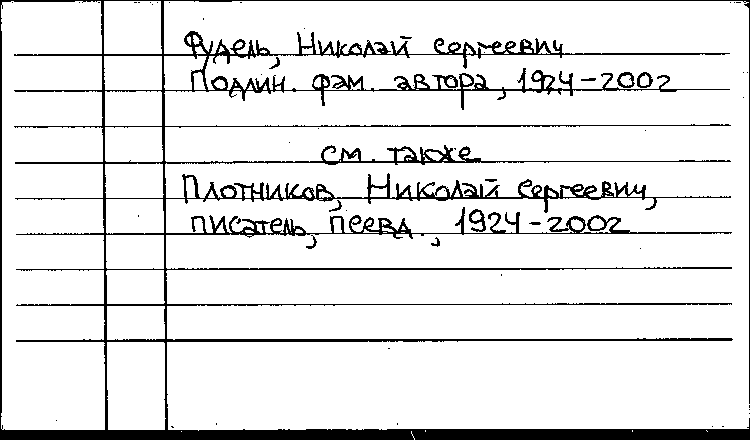 Фудель, Николай Сергеевич
Подлин. фам. автора, 1924-2002
см. также
Плотников, Николай Сергеевич,
писатель, псевд., 1924-2002